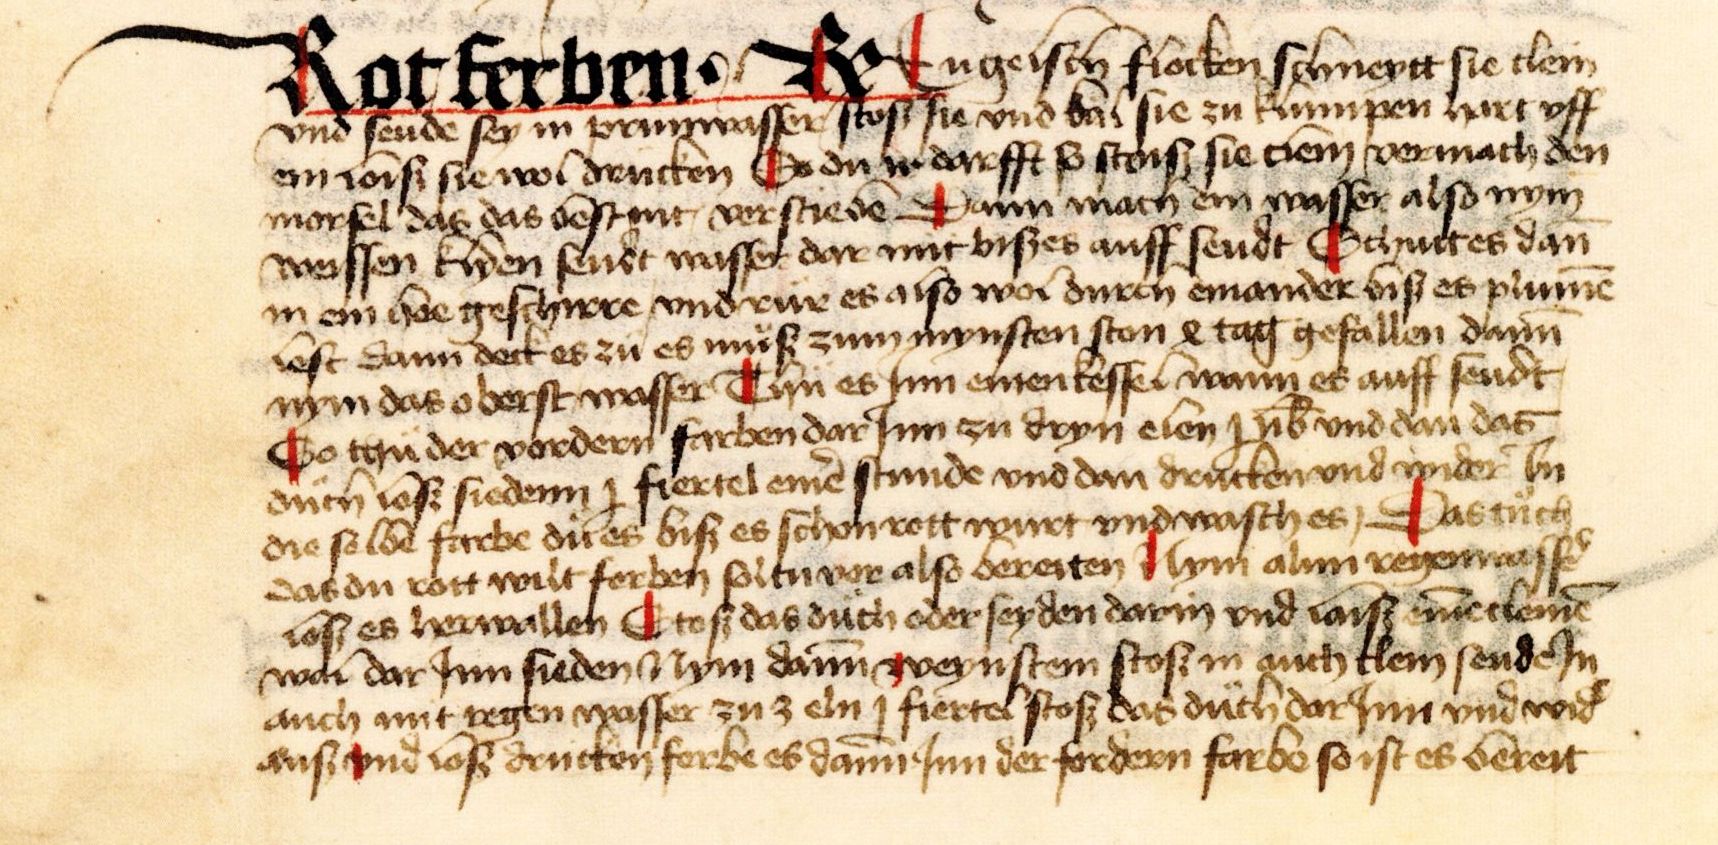 Rot ferben · Rx Engelsch flocken schneytt sie clein
vnd seude sey in prunwasser stoß sie vnd bal sie zu klumpen hart vff
ein loiß sie wol drucken So du ir darfft so stoiß sie clein vermach den
morsel das das best nit verstiebe Dann mach ein wasser also nym
weissen klyen seudt wasser dar mit biß es auff seudt Schutt es dan̄
in ein hoe geschirre vnd rüre es also wol durch einander biß es plumē
lest dann deck es zu es müß zum mynsten ston tag gefallen dann̄
nym das oberst wasser Thü es Jnn einen kessel wann es auff seudt
So thü der vordern farben dar Jnn zu dryn elen j vnd dan das
düch loß siedenn j fiertel einer stunde vnd dan drucken vnd wider In
die selbe farbe dü es biß es schon rott wurt vnd wasch es Das tüch
das du rott wilt ferben soltu vor also bereiten Nym alun regenwasser
loß es herwallen Stoß das düch oder seyden darin vnd laiß eine cleine
wal dar Jnn sieden Nym dann weynstein stoß in auch clein seude Jn
auch mit regen wasser zu 3 eln j fiertel stoß das düch dar Jnn vnd wider
auß vnd loß drucken ferbe es dann Jnn der fordern farbe so ist es bereit